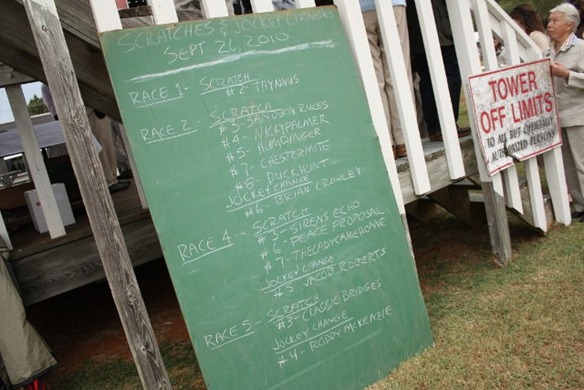 SCRATCHES & JOCKEY CHANGES
SEPT 26, 2010
RACE 1 - SCRATCH
#2 - THYNNUS
RACE 2 - SCRATCH
#3 - SANDBOX RULES
#4 - NICKYPALMER
#5 - HUMDINGER
#7 - CHESTERMITE
#8 - DUCKHUNT
JOCKEY CHANGE
#6 - BRIAN CROWLEY
RACE 4 - SCRATCH
#3 - SIRENS ECHO
#6 - PEACE PROPOSAL
#7 - THELADYCAMEHOME
JOCKEY CHANGE
#5 JACOB ROBERTS
RACE 5 - SCRATCH
#3 - CLASSIC BRIDGES
JOCKEY CHANGE
#4 - RODDY MCKENZIE
TOWER
OFF LIMITS
TO ALL BUT OFFICIALLY
AUTHORIZED PERSONS